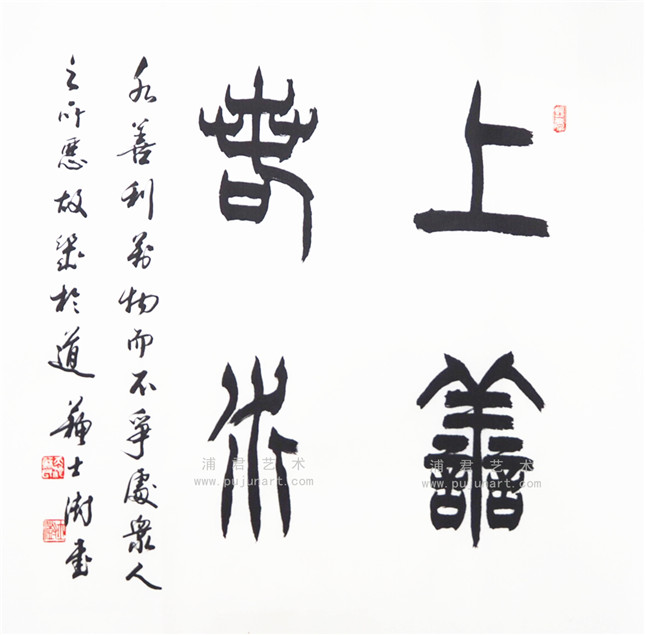 上善
若水
水善利萬物而不爭處眾人
之所惡故幾於道 蘇士澍書
浦君艺术
www.pujunart.com
浦君艺术
www.pujunart.com